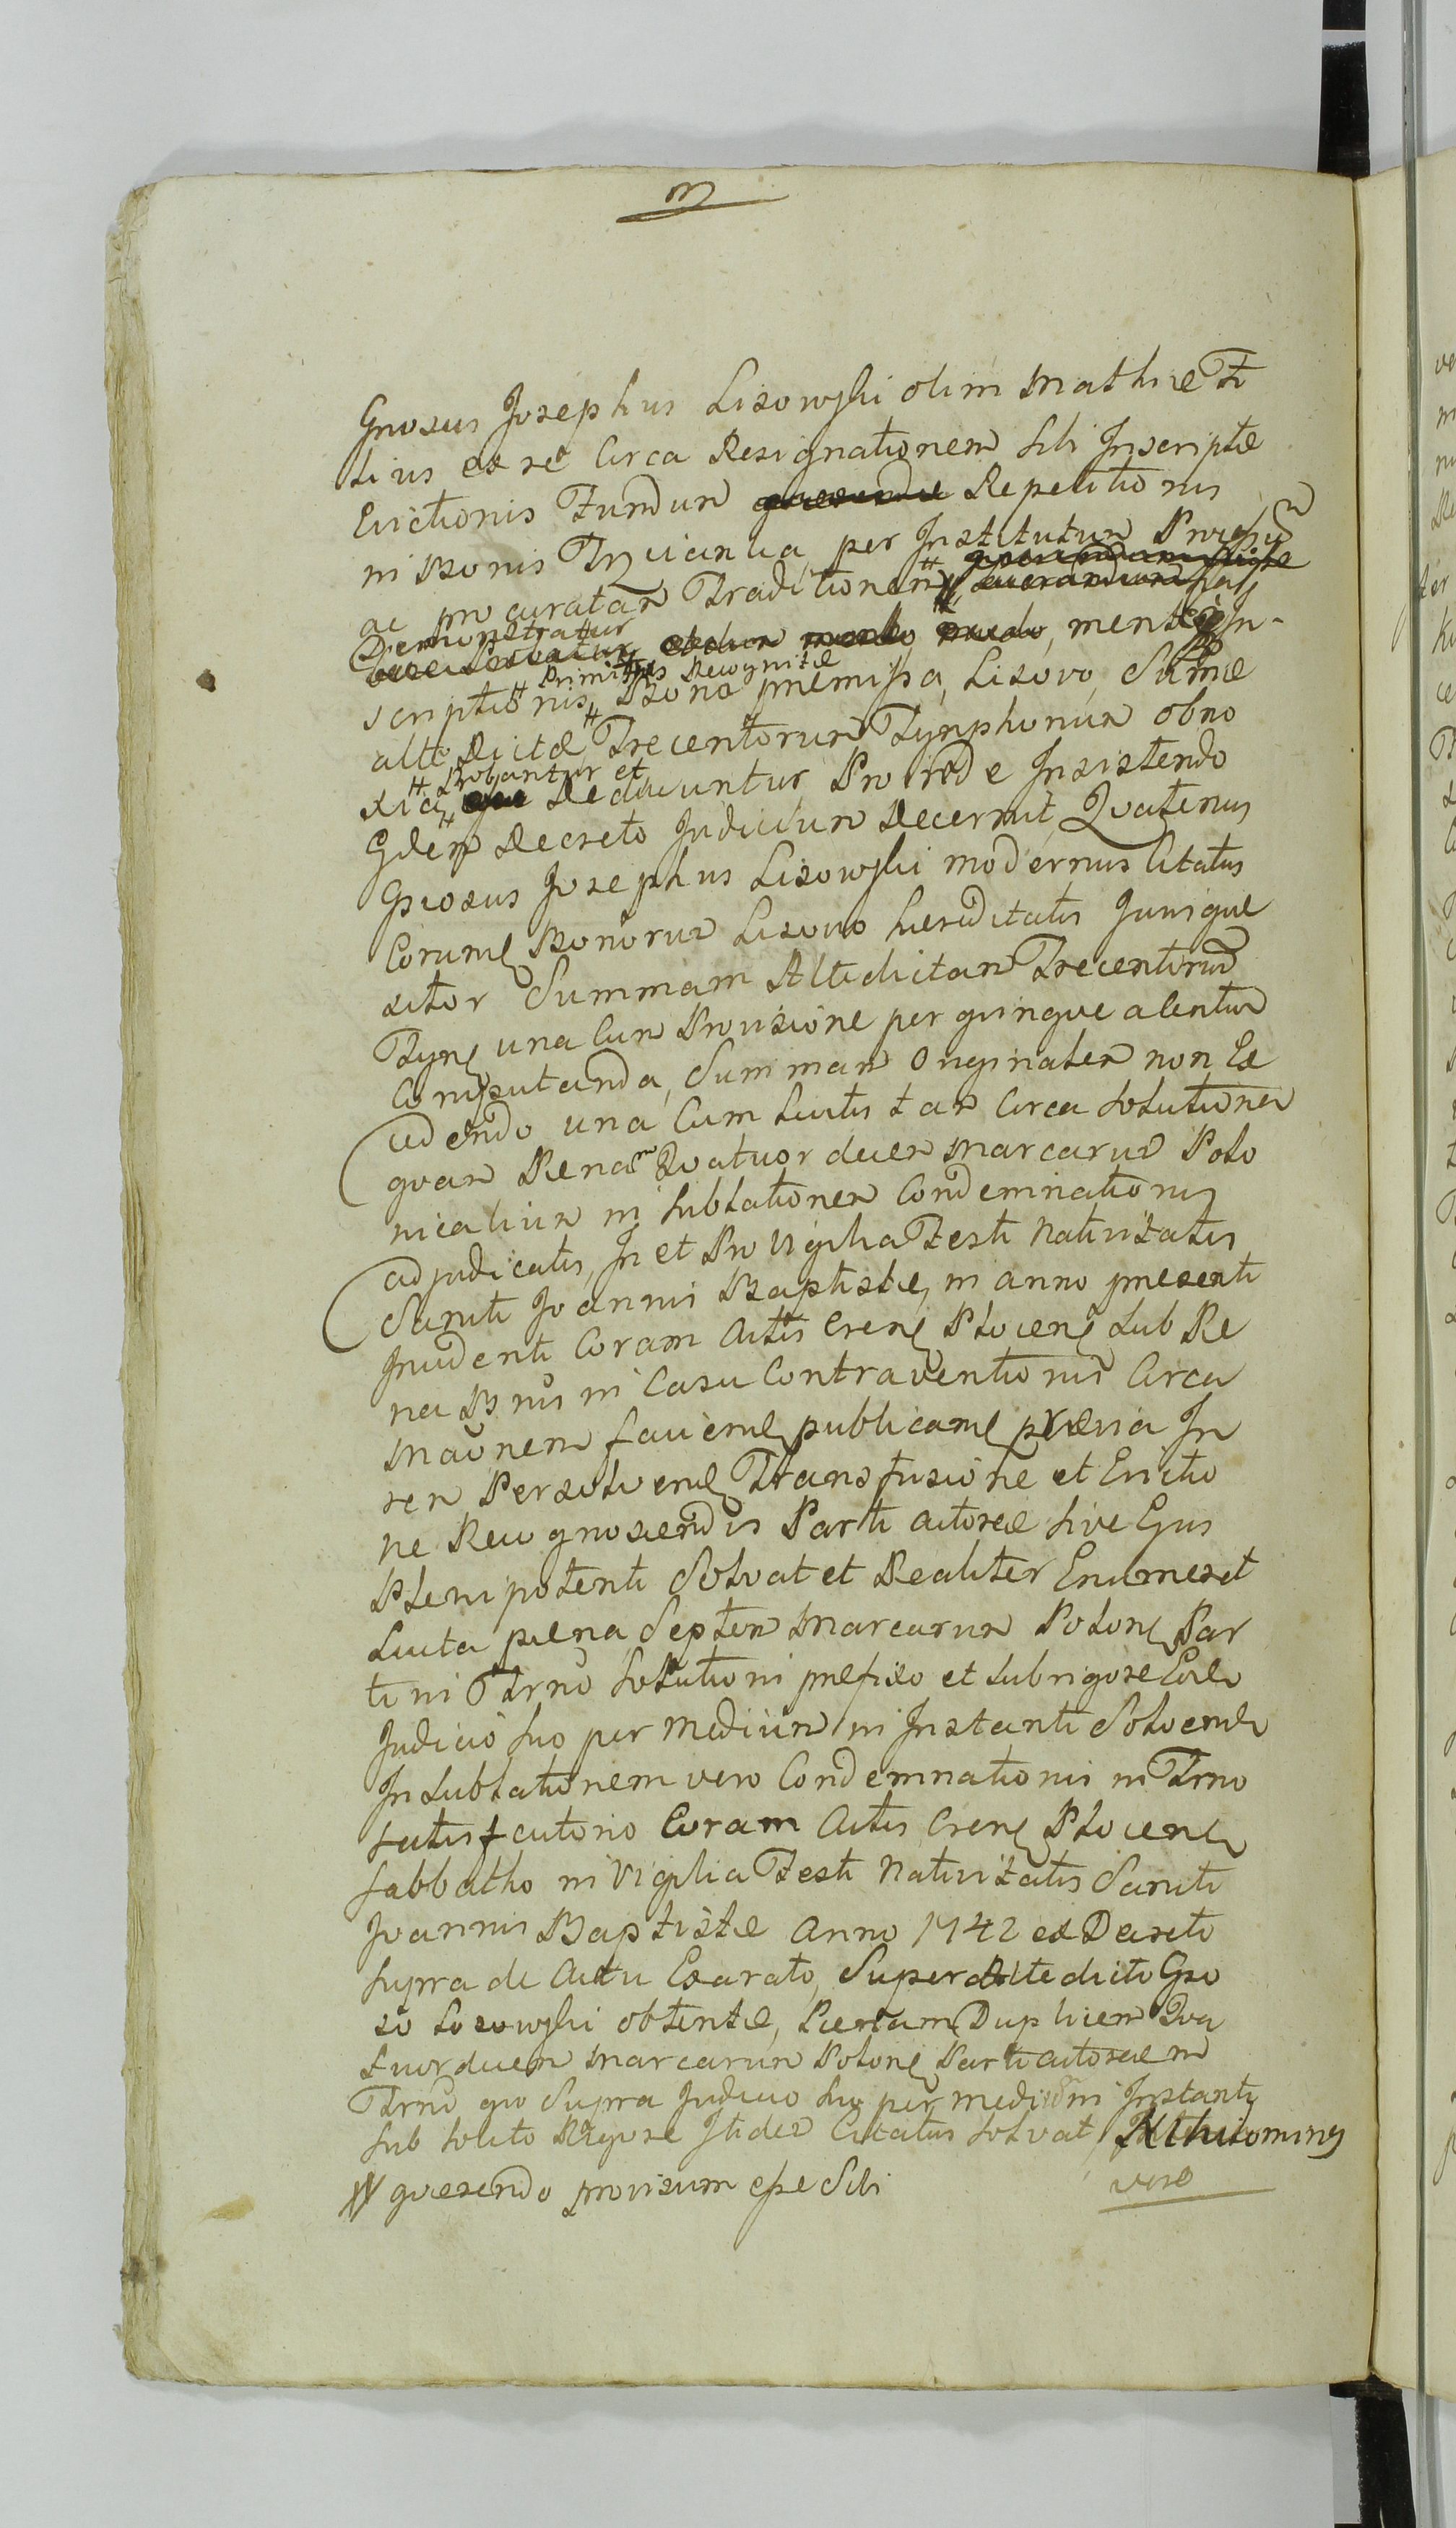 m
Gnosus Josephus Lisowski olim Mathiæ Fi
lius ex re Circa Resignationem sibi Inscriptæ
Evictionis Fundum Repetitionis
in Bonis per Institutum
ac procuratam Traditionem
Demonstratur mente In-
scriptionis # Primitus Recognitæ # Bona præmissa, Lisovo, Sumæ
alte dictæ Trecentorum Tynphonum obno
xia # Probantur et # Deducuntur, Proinde Insistendo
Eidem Decreto Judicium decernit, Quatenus
Gnosus Josephus Lisowski modernus Citatus
Eorum Bonorum Lisovo hæreditatis Jurisque
sitor Summam Altedictam Trecentorum
Tynf una Cum Provisione per quinque a Centum
Computanda, Summam Originalem non Ex
cedendo una Cum Luitis tam Circa Solutionem
quam Pænam Quatuordecem Marcarum Polo
nicalium in sublationem Condemnationis
adjudicatis, In et Pro Vigilia Festi Nativitatis
Sancti Joannis Baptistæ, in anno præsenti
Incidenti Coram Actis Cren Plocen sub Pæ
na Bnis in Casu Contraventionis Circa
publicam prævia In
rem Persolven Transfusione et Evictio
ne Recognoscendis Parti actoreæ sive Ejus
Plenipotenti Solvat et Realiter Enumeret
Luita pæna Septem Marcarum Polon Par
ti in Trno Solutioni præfixo et sub rigore
Judicio suo per medium in Instanti Solven
In sublationem vero Condemnationis in Trno
satisfactorio Coram Actis Cren Plocen
Sabbatho in Vigilia Festi Nativitatis Sancti
Joannis Baptistæ Anno 1742 ex Decreto
supra de Actu Exarato, Super Altedicto Gno
so Lisowski obtentæ, Pænam Duplicem Qua
tuordecem Marcarum Polon Parti actoreæ in
Trno quo Supra Judicio suo per medium in Instanti
sub solito Rigore Itidem Citatus solvat,
# quærendo provisum esse Sibi
vero